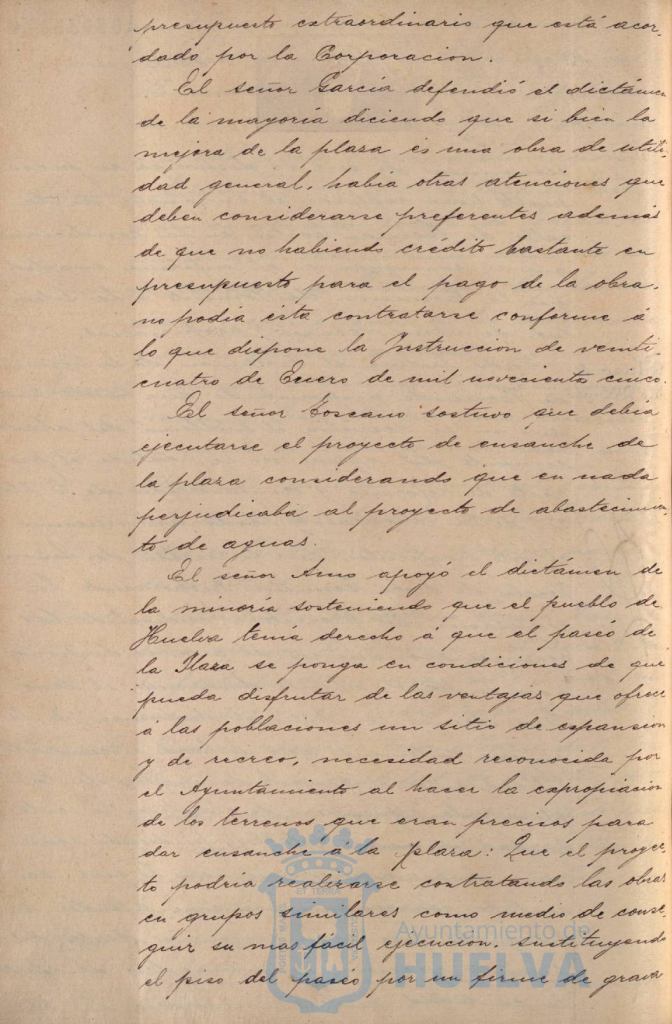 presupuesto extraordinario que está acor-
dado por la Corporacion.
El señor García defendió el dictámen
de la mayoría diciendo que si bien la
mejora de la plaza es una obra de utili-
dad general, habia otras atenciones que
deben considerarse preferentes además
de que no habiendo crédito bastante en
presupuesto para el pago de la obra,
no podia ésta contratarse conforme á
lo que dispone la Instruccion de veinti
cuatro de Enero de mil novecientos cinco.
El señor Toscano sostuvo que debia
ejecutarse el proyecto de ensanche de
la plaza considerando que en nada
perjudicaba al proyecto de abastecimien-
to de aguas.
El señor Amo apoyó el dictámen de
la minoría sosteniendo que el pueblo de
Huelva tenía derecho á que el paseo de
la Plaza se ponga en condiciones de que
pueda disfrutar de las ventajas que ofrece
á las poblaciones un sitio de espansion
y de recreo, necesidad reconocida por
el Ayuntamiento al hacer la expropiacion
de los terrenos que eran precisos para
dar ensanche á la plaza: Que el proyec-
to podria realizarse contratando las obras
en grupos similares como medio de conse-
guir su mas fácil ejecucion, sustituyendo
el piso del paseo por un firme de grava
Ayuntamiento de
HUELVA